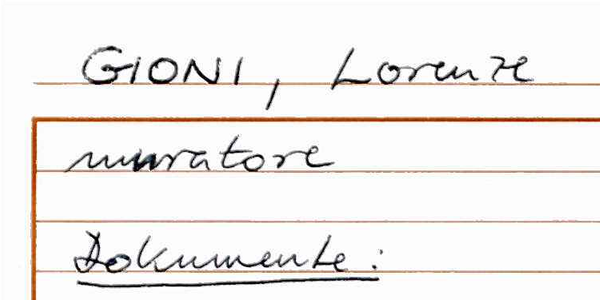 GIONI, Lorenze
muratore
Dokumente: